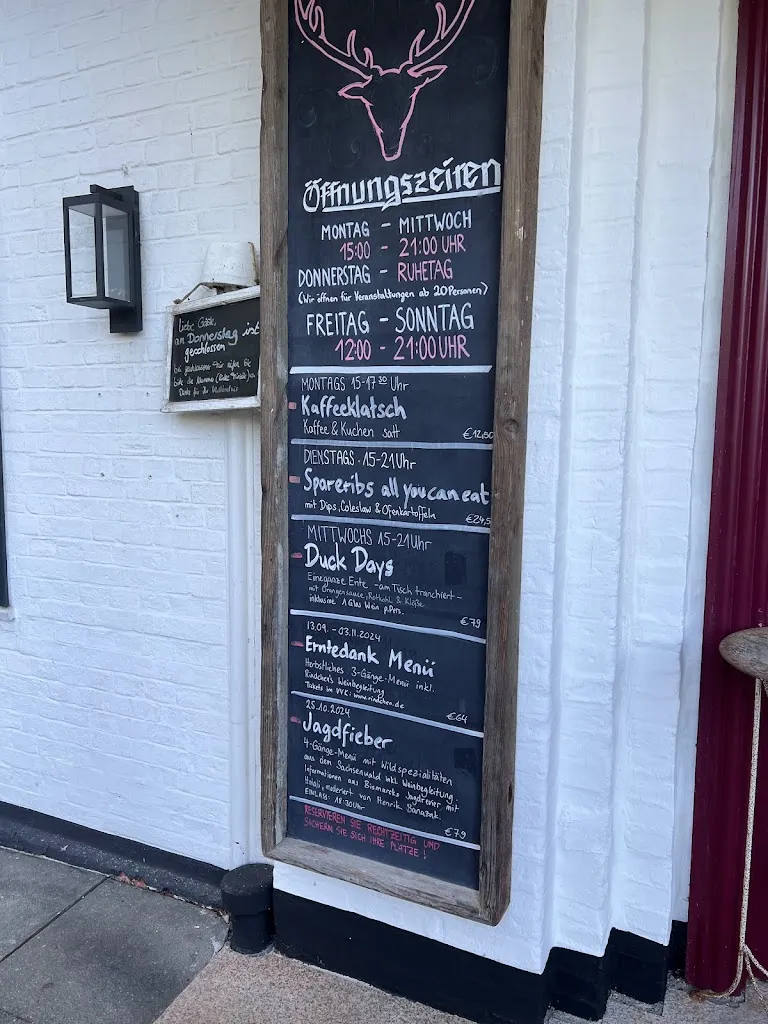 Öffnungszeiten
MONTAG - MITTWOCH
15:00 - 21:00 UHR
DONNERSTAG - RUHETAG
(Wir öffnen für Veranstaltungen ab 20 Personen)
FREITAG - SONNTAG
12:00 - 21:00 UHR
MONTAGS 15-17 30 Uhr
Kaffeeklatsch
Kaffee & Kuchen satt €12,50
DIENSTAGS · 15-21 Uhr
Spareribs all you can eat
mit Dips, Coleslaw & Ofenkartoffeln
€24,5
MITTWOCHS 15-21 Uhr
Duck Days
Eine ganze Ente - am Tisch tranchiert -
mit Orangensauce, Rotkohl & Klöße
inklusive 1 Glas Wein p.Pers.
€79
13.09. - 03.11.2024
Erntedank Menü
Herbstliches 3-Gänge-Menü inkl.
Rindchen's Weinbegleitung
Tickets im VVK: www.rindchen.de
€64
25.10.2024
Jagdfieber
4-Gänge-Menü mit Wildspezialitäten
aus dem Sachsenwald inkl. Weinbegleitung.
Informationen aus Bismarcks Jagdrevier mit
moderiert von Henrik
EINLASS: 18:30 Uhr
€79
RESERVIEREN SIE RECHTZEITIG UND
SICHERN SIE SICH IHRE PLÄTZE!
Liebe Gäste,
am Donnerstag ist
geschlossen